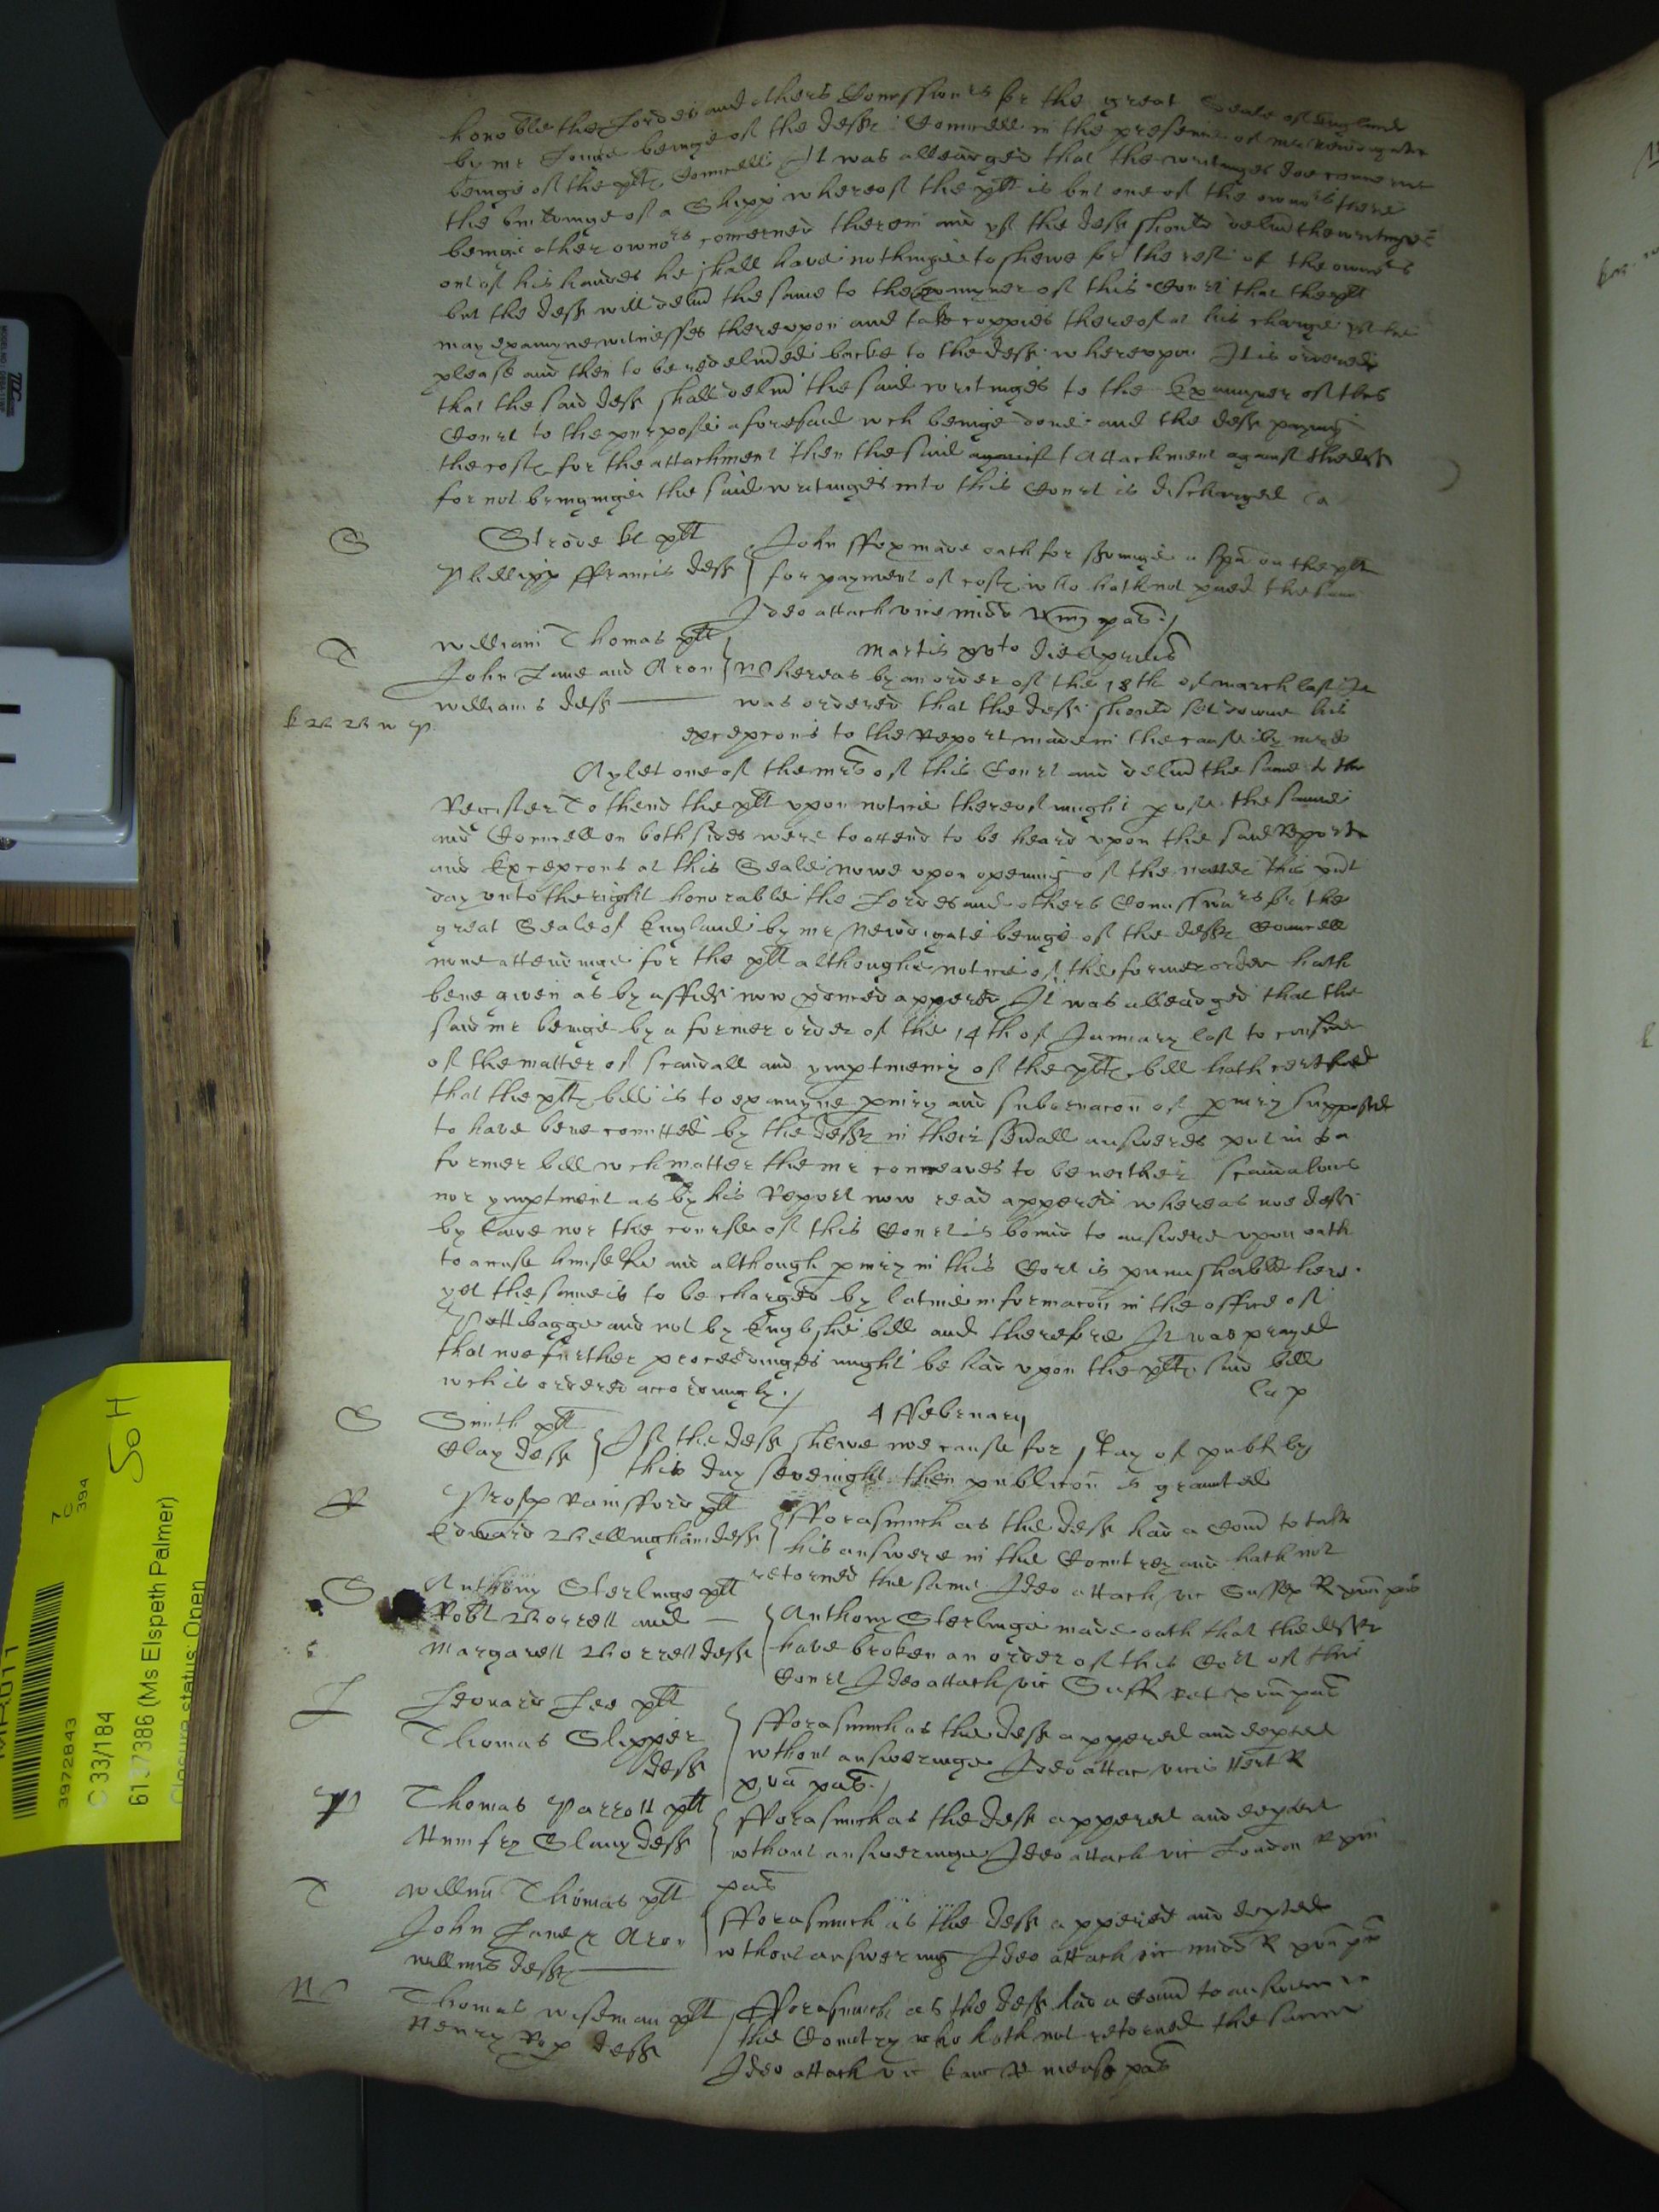 honoble the Lordes and others Comissionrs for the great Seale of England
by mr Tonge beinge of the defts Councell in the presence of mr Newdigate
beinge of the plts Councell It was alleadged that the writinges doe concerne
the buildinge of a Shipp whereof the plt is but one of the ownors there
beinge other ownors concerned therein and yf the deft should deliver the writinges
out of his handes he shall have nothinge to shewe for the rest of the owners
but the deft will delivr the same to the Examyner of this Court that the plt
may examyne witnesses thereupon and take coppies thereof at his charge yf he
please and then to be redelivred backe to the deft whereupon It is ordered
that the said deft shall delivr the said writinges to the Examyner of this
Court to the purpose aforesaid wch beinge done and the deft payinge
the costs for the attachment then the said Attachment against the deft
for not bringinge the said writinges into this Court is discharged
S Strode kt plt
Phillipp ffrancis deft
John ffox made oath for servinge a spa on the plt
for payment of costs who hath not paied the same
Ideo attach vic midd pas
T William Thomas plt
John Lane and Aron
Williams defts
Martis die Aprilis
Whereas by an order of the 18th of march last It
was ordered that the deft should set downe his
excepcons to the Report made in the cause by mr
Aylet one of the mrs of this Court and delivr the same to the
Register To thend the plt upon notice thereof might the same
and Councell on both sides were to attend to be heard upon the said Report
and Excepcons at this Seale nowe upon openinge of the matter this psnt
day unto the right honorable the Lordes and others Comissionrs for the
great Seale of England by mr Newdigate beinge of the defts Councell
none attendinge for the plt althoughe notice of the former order hath
bene given as by affidt now pduced appered It was alleadged that the
said mr beinge by a former order of the 14th of January last to consider
of the matter of scandall and ympertinency of the plts bill hath certified
that the plts bill is to examyne periury and subornacon of periury supposed
to have bene comitted by the defts in their severall answeres put in to a
former bill wch matter the mr conceaves to be neither scandalous
nor ympertinent as by his Report now read appered whereas noe deft
by lawe nor the course of this Court is bound to answere upon oath
to accuse himselfe and although periury in this Cort is punnishable here
yet the same is to be charged by latine informacon in the office of
Pettibagge and not by Englishe bill and therefore It was prayed
that noe further proceedinges might be had upon the plts said bill
wch is ordered accordingly
S Smith plt
Clay deft
4 ffebruary
If the deft shewe noe cause for stay of publ by
this day sevenight then publicon is graunted
R Rainsford plt
Edward Bellingham deft
fforasmuch as the deft had a Comn to take
his answere in the Countrey and hath not
retorned the same Ideo attach vic Sussex R
S Anthony Sterlinge plt
Robt Borrett and
Margarett Borrett defts
Anthony Sterlinge made oath that the defts
have broken an order of this Cort of this
Court Ideo attach vic Suff
L Leonard Lee plt
Thomas Slipper
deft
fforasmuch as the deft appered and depted
wthout answeringe Ideo attac vic Hert R
pas
P Thomas Parrott plt
Humfry Slany deft
fforasmuch as the deft appered and depted
wthout answeringe Ideo attach vic London R
pas
T Willmi Thomas plt
John Lane & Aron
Willms defts
fforasmuch as the deft appered and depted
wthout answering Ideo attach vic midd R
W Thomas Wiseman plt
Henry deft
fforasmuch as the deft had a Comn to answere in
the Countrey who hath not retorned the same
Ideo attach vic Canc R mense pas
MR011
3972843
C 33/184
6137386 (Ms Elspeth Palmer)
Closure status: Open
7
C
394
So H